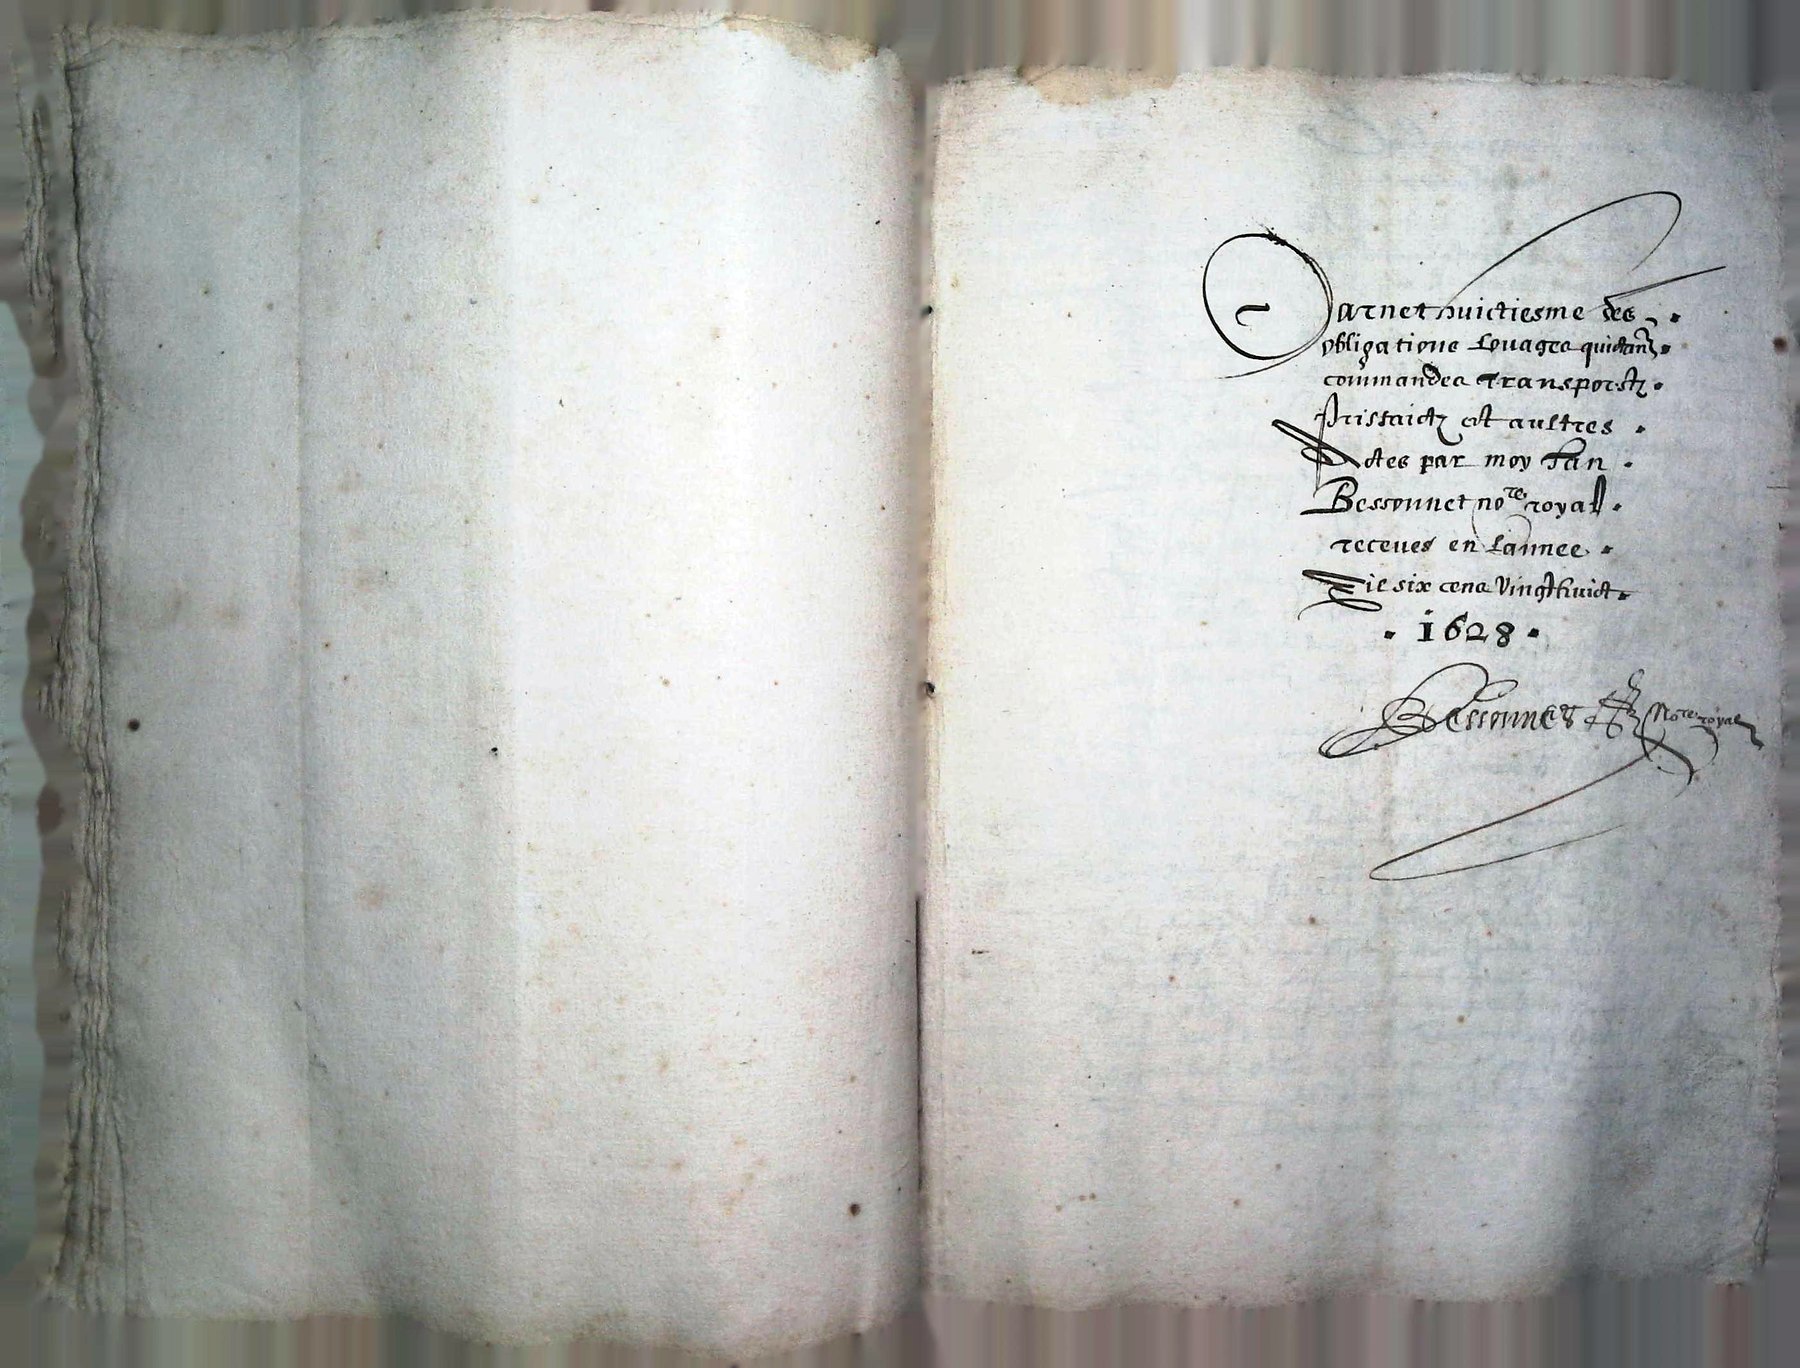 Carnet huictiesme des
obligations Louages quictancz
commandes Transportz
Prisfaictz et aultres
Actes par moy Jan
Bessonnet no.re royal
receues en Lannee
Mil six cens vingt huict
1628
Bessonnet No.re royal